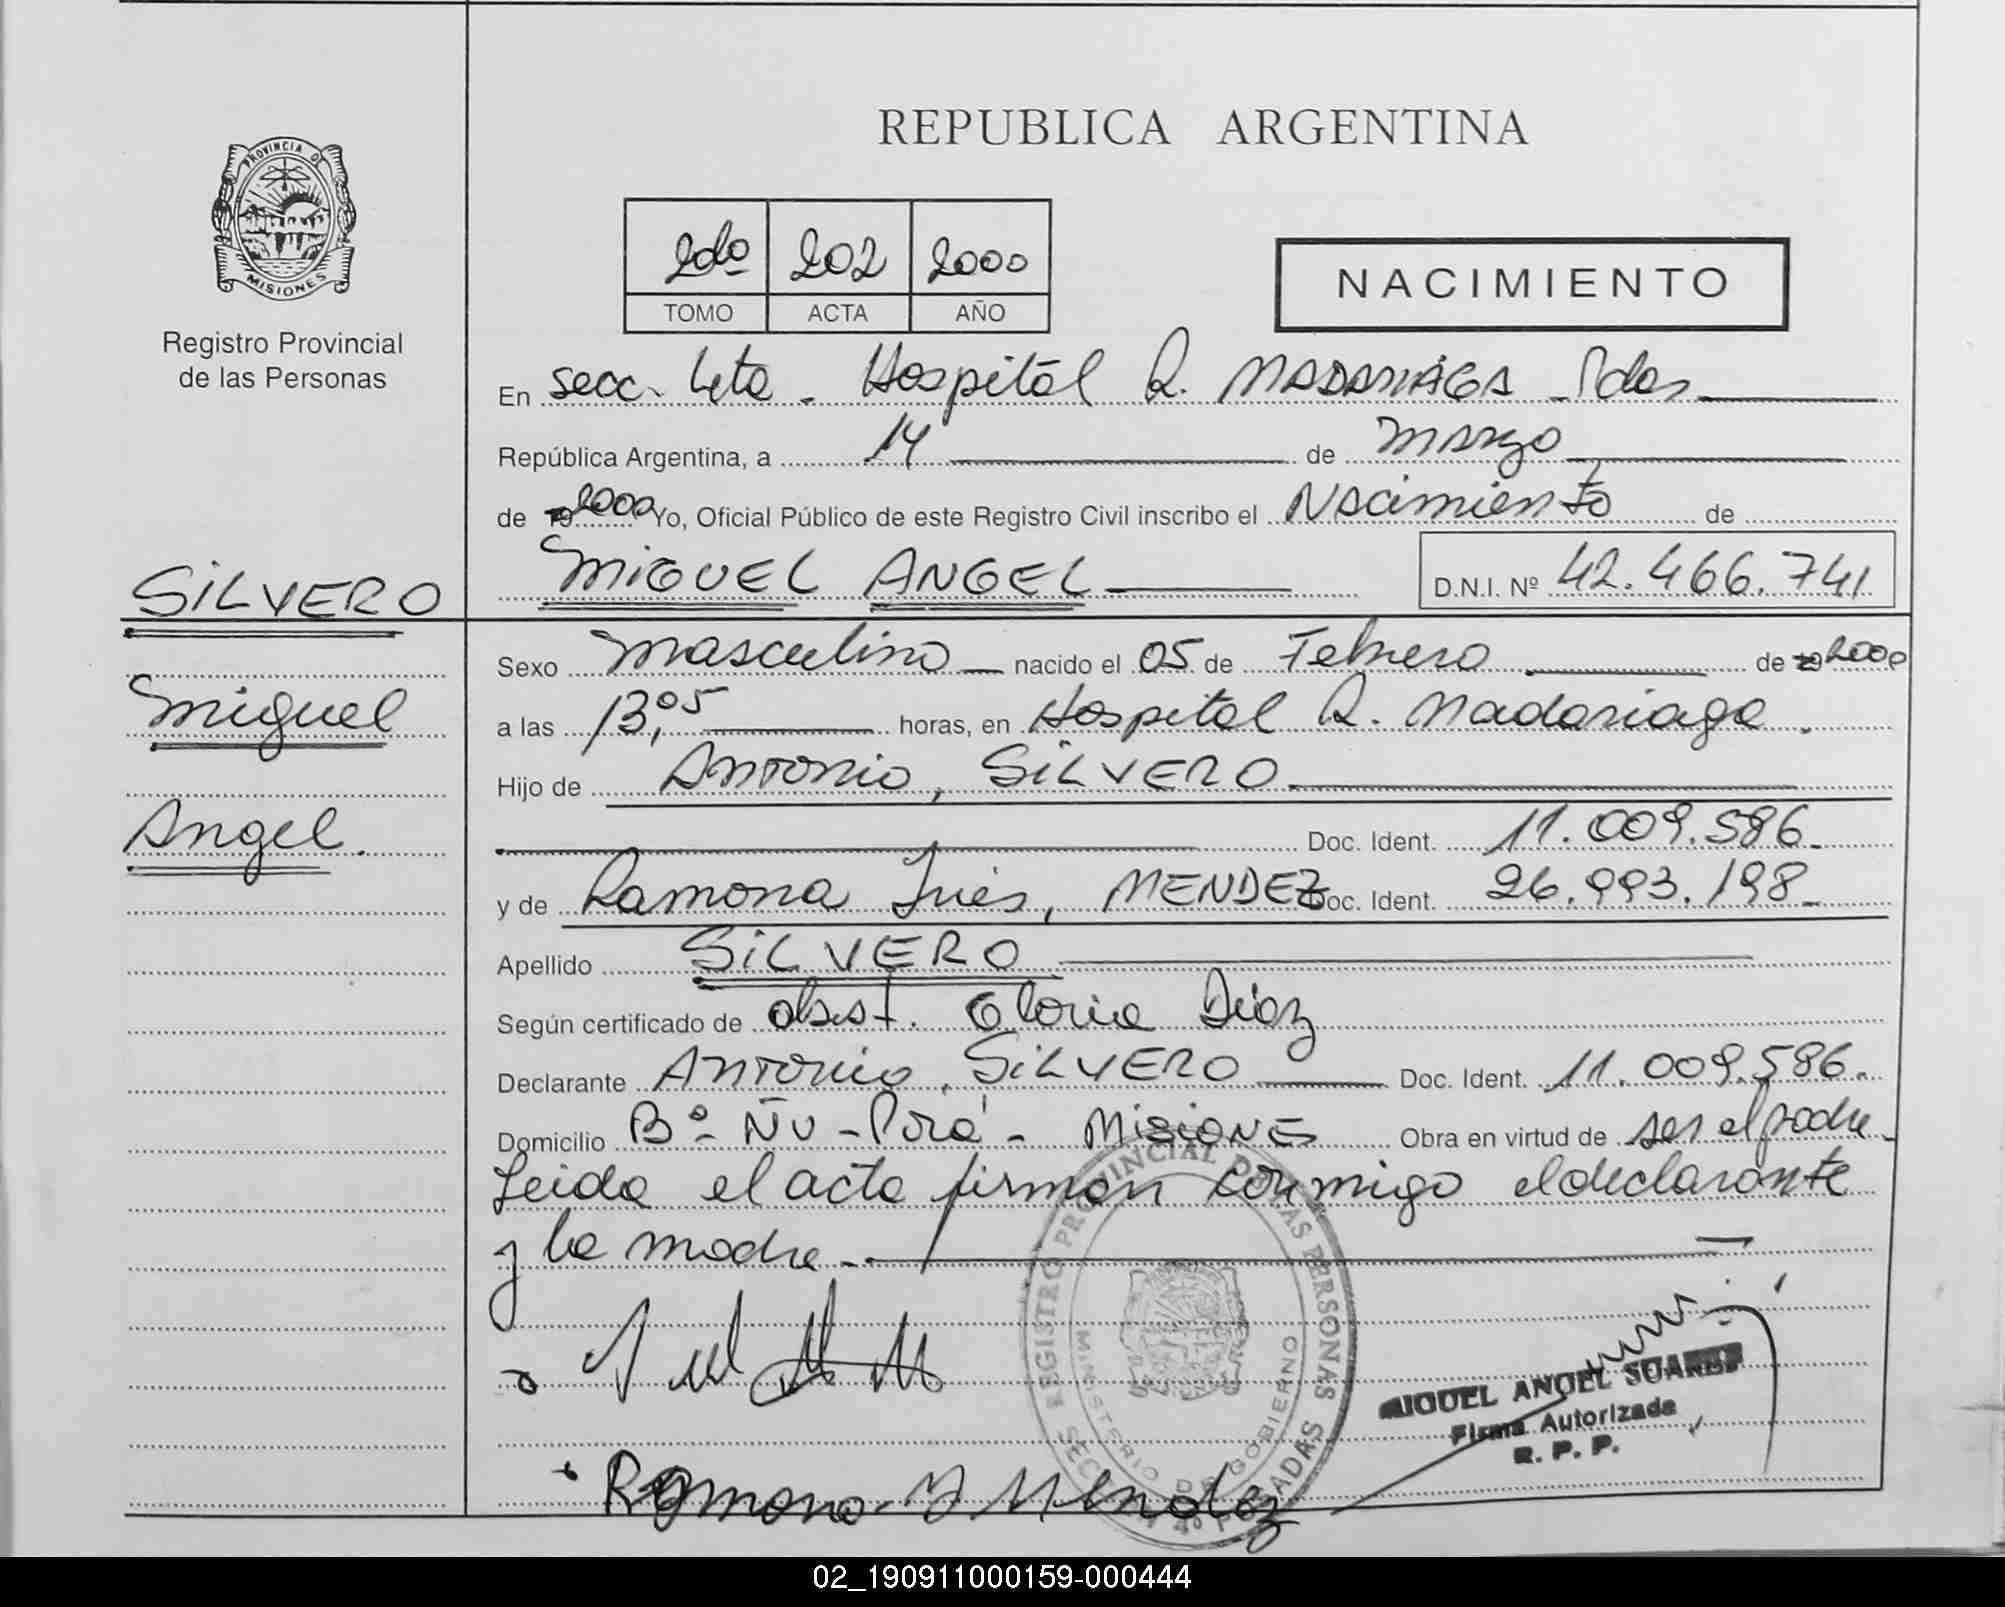 REPUBLICA ARGENTINA
PROVINCIA DE MISIONES
Registro Provincial
de las Personas
2do 202 2000
TOMO ACTA AÑO
NACIMIENTO
En secc. 4ta. Hospital R. MADARIAGA - Pdas
República Argentina, a 14 de Marzo
de 2000 Yo, Oficial Público de este Registro Civil inscribo el Nacimiento de
MIGUEL ANGEL D.N.I. Nº 42.466.741
SILVERO
Miguel
Angel.
Sexo Masculino nacido el 05 de Febrero de 2000
a las 13,05 horas, en Hospital R. Madariaga.
Hijo de Antonio, SILVERO
Doc. Ident. 11.009.586
y de Ramona Inés, MENDEZ Doc. Ident. 26.993.198
Apellido SILVERO
Según certificado de obst. Gloria Diaz
Declarante Antonio, SILVERO Doc. Ident. 11.009.586.
Domicilio Bº Ñu-Porá - MISIONES Obra en virtud de ser el padre
Leida el acta firman conmigo el declarante
y la madre
REGISTRO PROVINCIAL DE LAS PERSONAS
MINISTERIO DE GOBIERNO
MIGUEL ANGEL SUAREZ
Firma Autorizada
R. P. P.
Ramona I Mendez
02_190911000159-000444